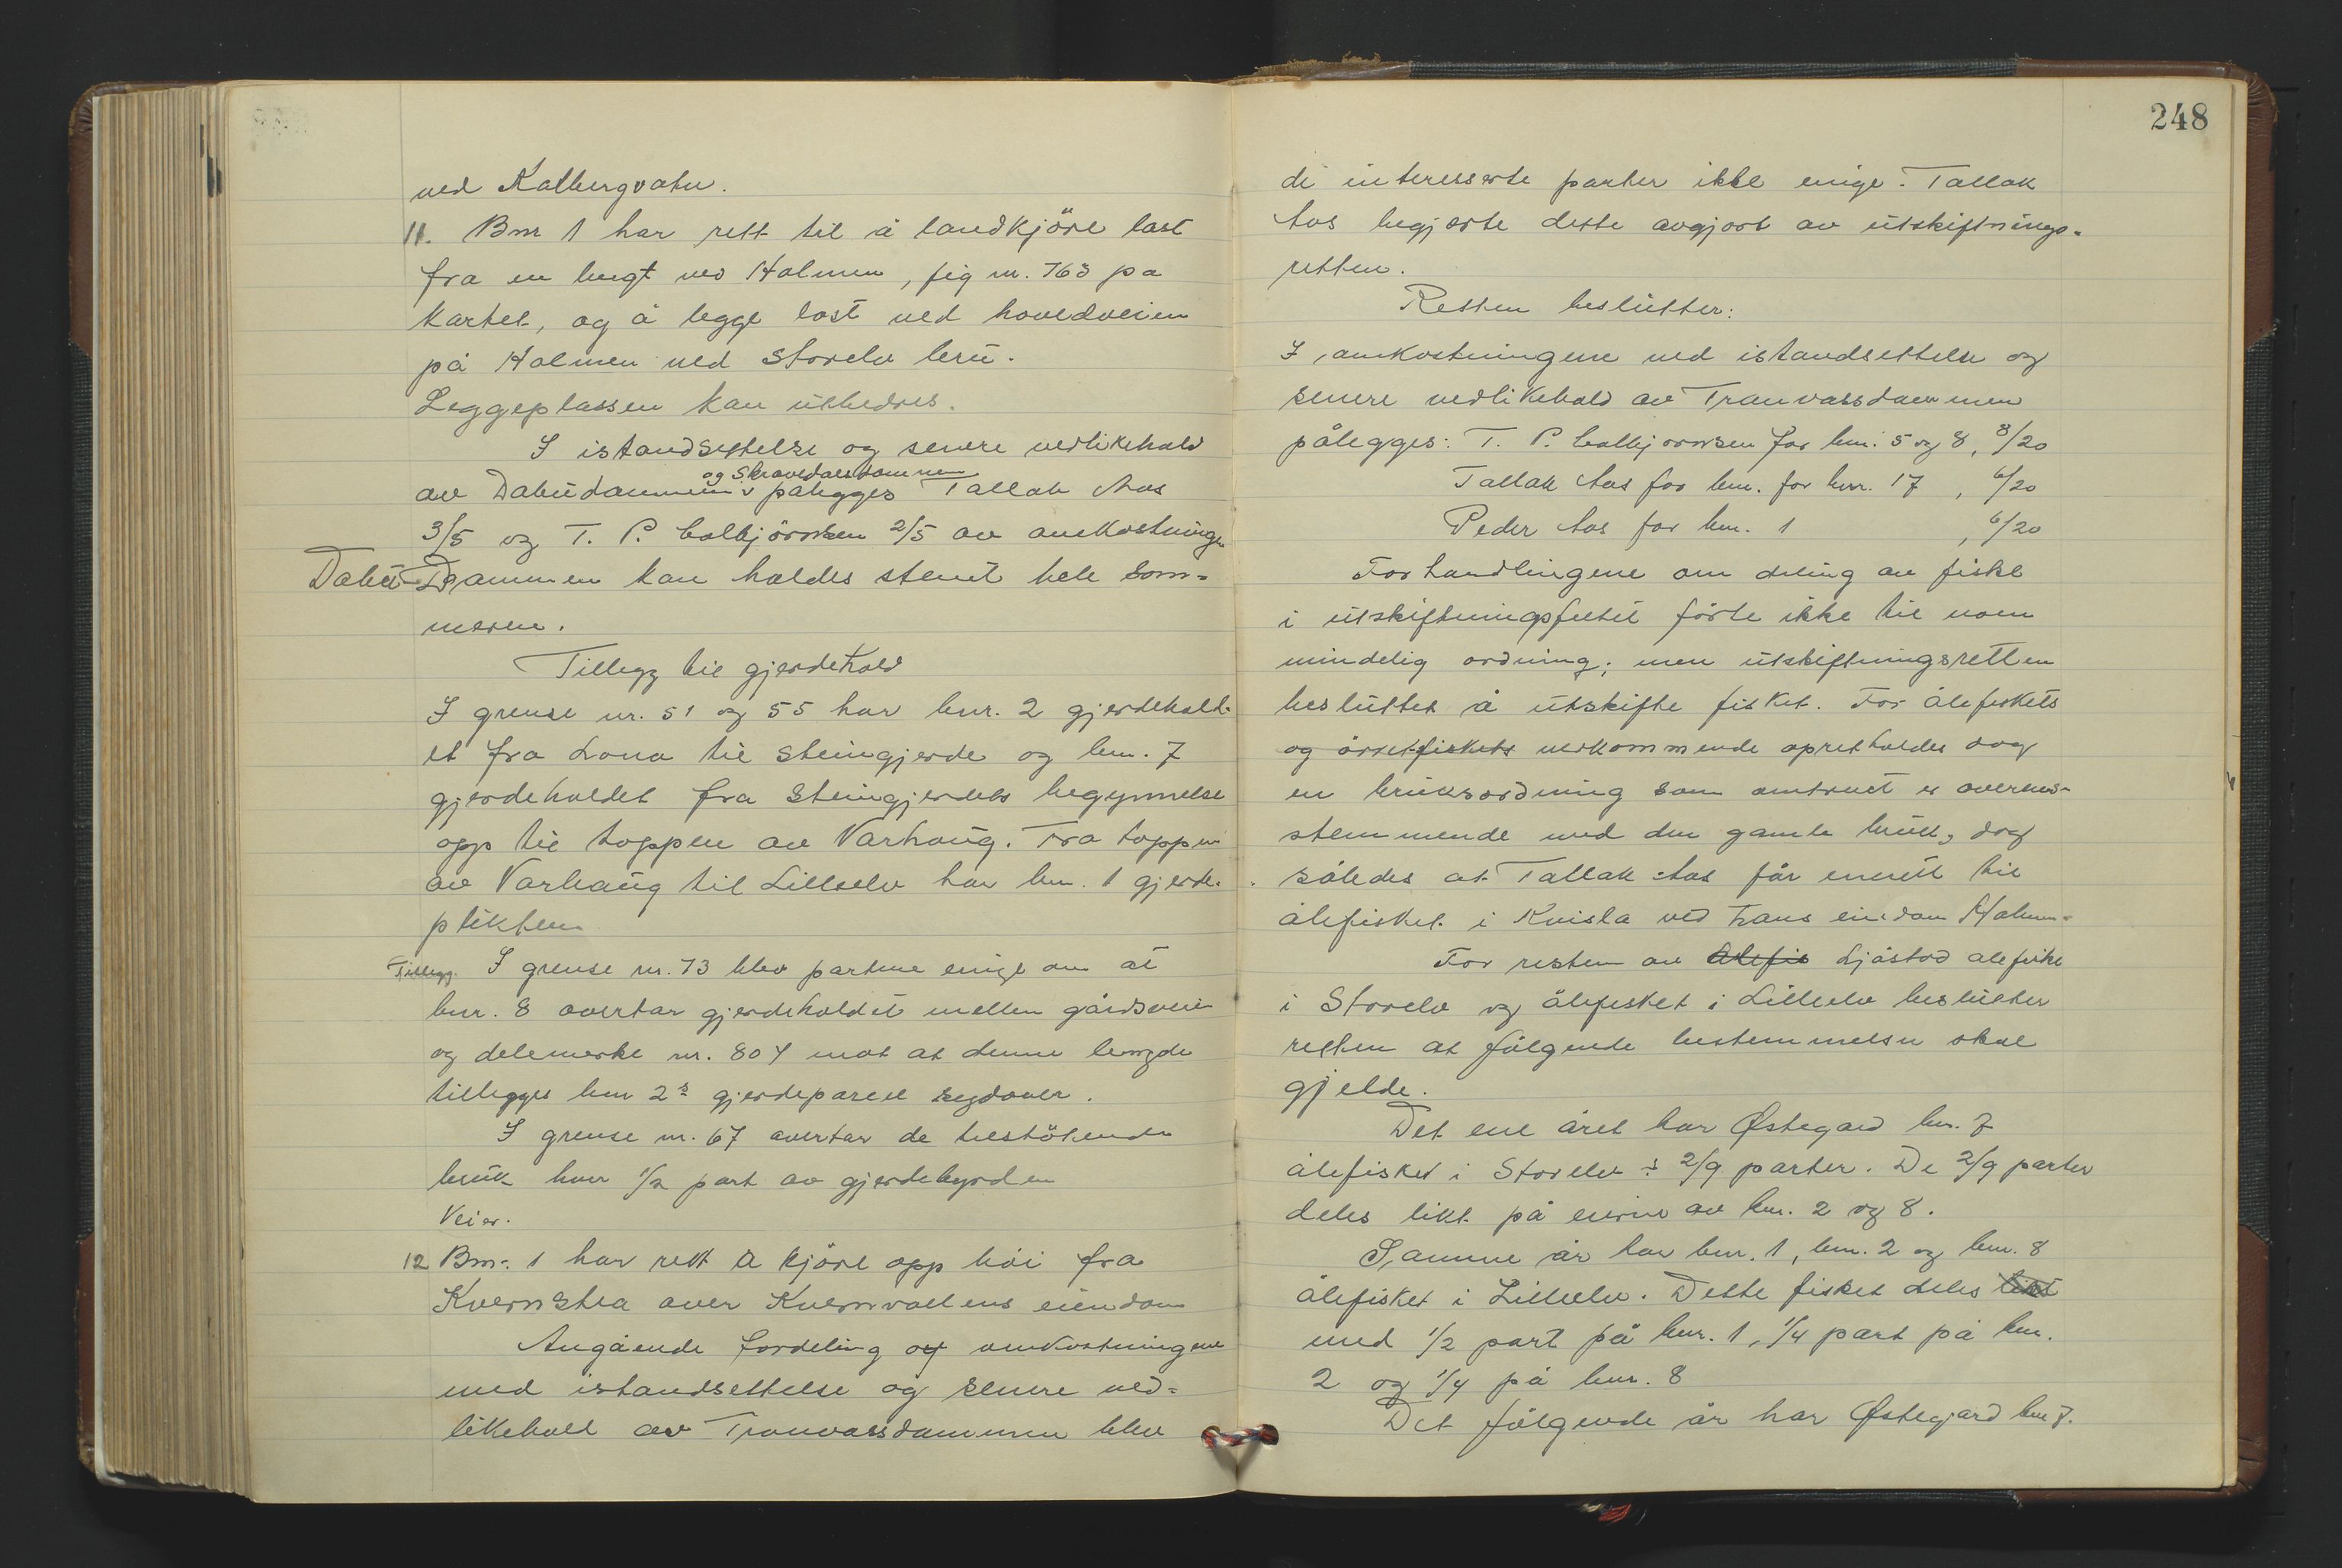 248
ved Kalbergvatn.
11. Bnr 1 har rett til å landkjöre last
fra en bugt ved Holmen, fig nr. 763 pa
kartet, og å legge last ved hovedveien
på Holmen ved Storelv bru.
Leggeplassen kan utbedres.
I istandsettelse og senere vedlikehold
og Skravedalsdammen
av Dabudammen pålegges Tallak Aas
3/5 og T. P. Colbjörnsen 2/5 av omkostninge
Dabu-Dammen kan holdes stemt hele som-
meren.
Tillegg til gjerdehold
I grense nr. 51 og 55 har bnr. 2 gjerdehold-
et fra Lona til steingjerde og bnr. 7
gjerdeholdet fra steingjerdets begynnelse
opp til toppen av Varhaug. Fra toppen
av Varhaug til Lilleelv har bnr. 1 gjerde-
plikten
Tillegg. I grense nr. 73 blev partene enige om at
bnr. 8 overtar gjerdeholdet mellem gårdsvei
og delemerke nr. 804 mot at denne lengde
tillegges bnr 2s gjerdeparsell sydover.
I grense nr. 67 overtar de tilstötende
bruk hver 1/2 part av gjerdebyrden
Veier.
12 Bnr. 1 har rett å kjöre opp höi fra
Kvernstea over Kvernvollens eiendom
Angående fordeling av omkostningene
med istandsettelse og senere ved-
likehold av Tranvassdammen blev
de interesserte parter ikke enige. Tallak
Aas begjærte dette avgjort av utskiftnings-
retten.
Retten beslutter:
I omkostningene ved istandsettelse og
senere vedlikehold av Tranvassdammen
pålegges: T. P. Colbjörnsen for bnr. 5 og 8, 8/20
Tallak Aas for bnr. for bnr. 17, 6/20
Peder Aas for bnr. 1, 6/20
Forhandlingene om deling av fiske
i utskiftningsfeltet förte ikke til noen
mindelig ordning; men utskiftningsretten
besluttet å utskifte fisket. For ålefiskets
og örretfiskets vedkommende opretholdes dog
en bruksordning som omtrent er overens-
stemmende med den gamle bruk, dog
således at Tallak Aas får enerett til
ålefisket i Kvisla ved hans eiendom Holmen-
For resten av Alefis Ljåstad alefiske
i Storelv og ålefisket i Lilleelv beslutter
retten at fölgende bestemmelser skal
gjelde.
Det ene året har Østegard bnr. 7
ålefisket i Storelv ÷ 2/9 parter. De 2/9 parter
deles likt på eierne av bnr. 2 og 8.
Samme år har bnr. 1, bnr. 2 og bnr. 8
ålefisket i Lilleelv. Dette fisket deles likt
med 1/2 part på bnr. 1, 1/4 part på bnr.
2 og 1/4 på bnr. 8
Det fölgende år har Østegjard bnr 7.